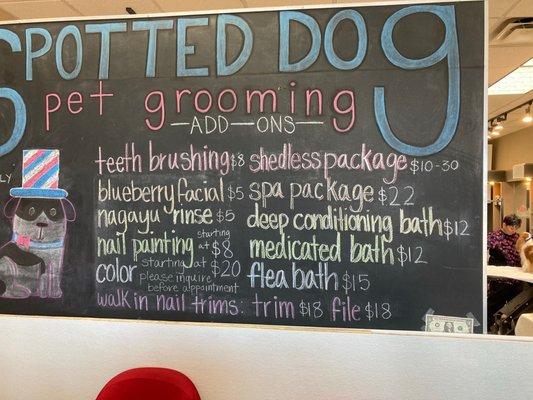 SPOTTED DOG
pet grooming
—ADD-ONS—
LY
teeth brushing $8
blueberry facial $5
nagayu rinse $5
nail painting starting at $8
color starting at $20
please inquire
before appointment
shedless package $10-30
spa package $22
deep conditioning bath $12
medicated bath $12
flea bath $15
walk in nail trims: trim $18 file $18